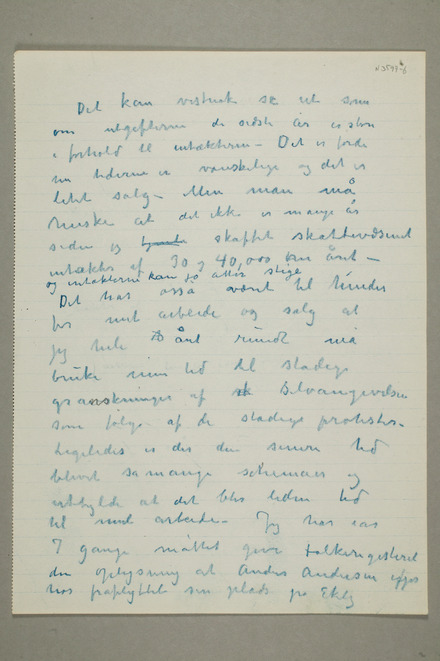 N 3544-6
Det kan vistnok se ut som
om utgifterne de sidste år er store
i forhold til intækterne – Det er fordi
nu tiderne er vanskelige og det er
litet salg – Men man må
huske at det ikke er mange år
siden jeg skaffet skattevæsenet
intækter af 30 og 40,000 kr året –
og intækterne kan jo atter stige
Det har også været til hinder
for mit arbeide og salg at
jeg hele året rundt må
bruke min tid til stadige
granskninger af Selvangivelsen
som følge af de stadige protester.
Ligeledes er der den senere tid
blevet så mange schemaer og
utfylde at det blir liden tid
til mit arbeide – Jeg har ias
7 gange måttet give folkeregisteret
den oplysning at Anders Andersen
har fraflyttet sin plads på Ekely